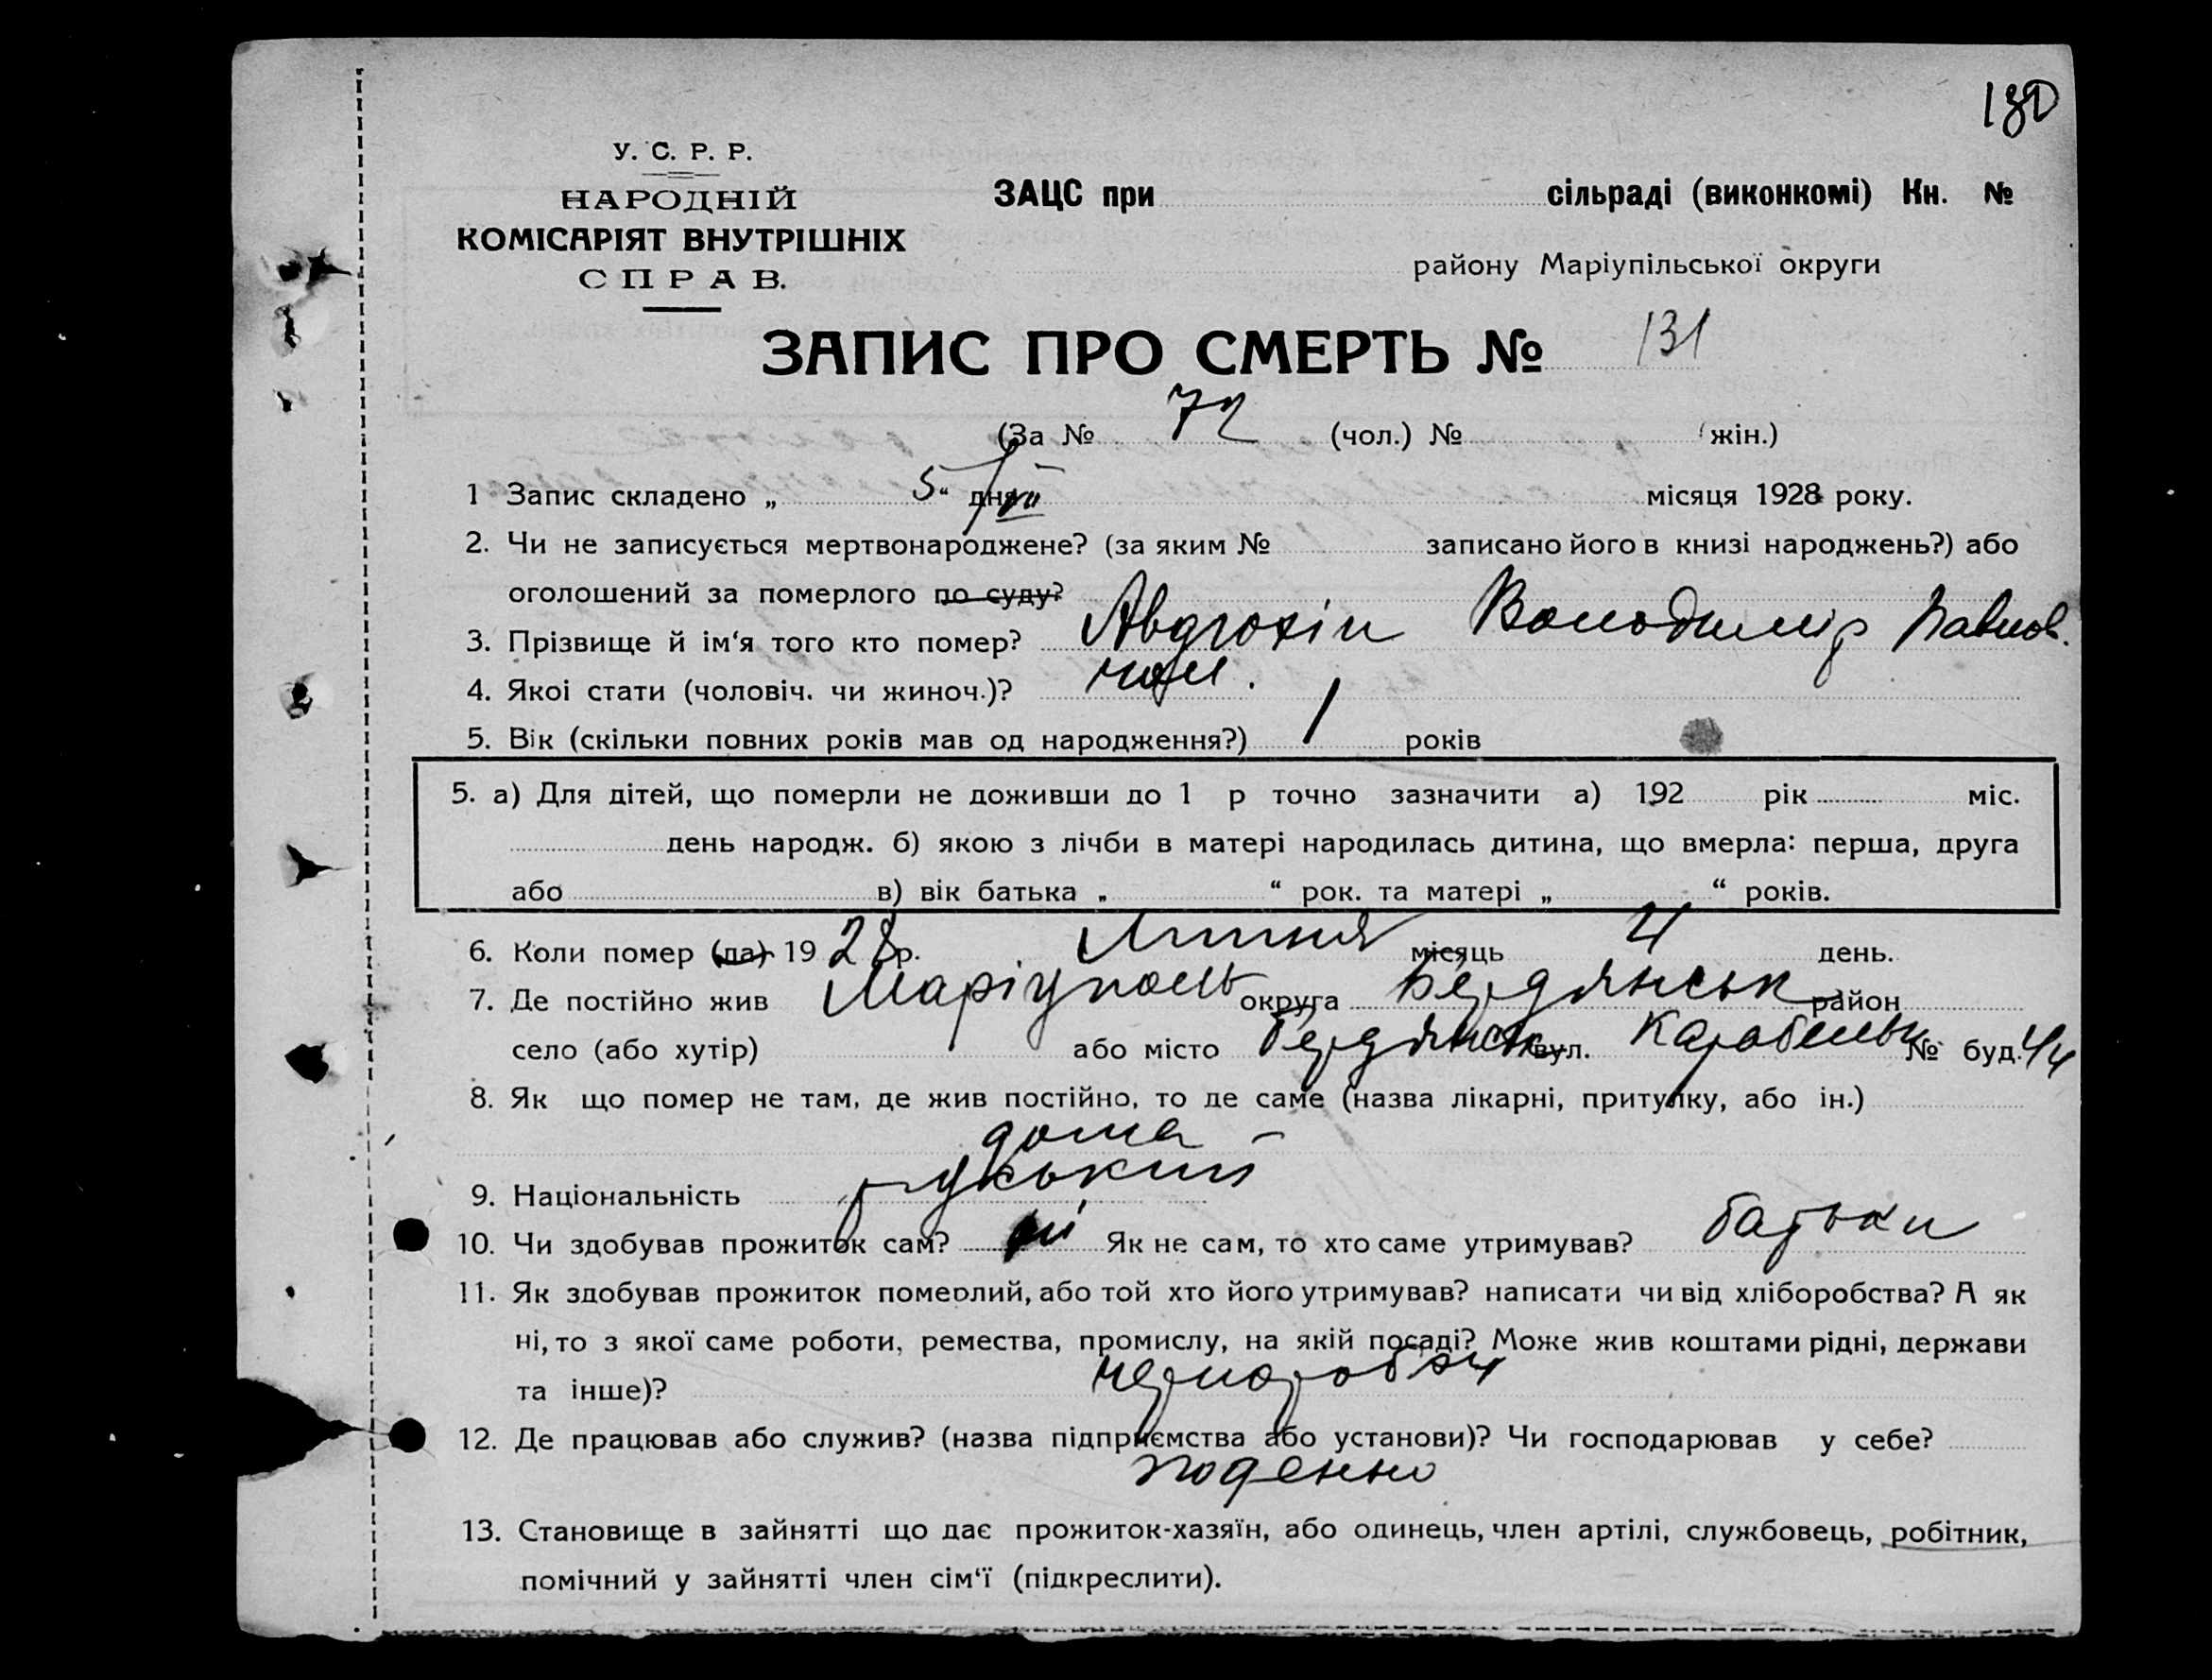 130
У. С. Р. Р.
НАРОДНІЙ
КОМІСАРІЯТ ВНУТРІШНІХ
СПРАВ.
ЗАЦС при сільраді (виконкомі) Кн. №
району Маріупільської округи
ЗАПИС ПРО СМЕРТЬ № 131
(За № 72 (чол.) № жін.)
1 Запис складено „ 5 “ дня VII місяця 1928 року.
2. Чи не записується мертвонароджене? (за яким № записано його в книзі народжень?) або
оголошений за померлого по суду?
3. Прізвище й ім‘я того кто помер? Авдюхін Володимір Павлов.
4. Якоі стати (чоловіч. чи жиноч.)? чол.
5. Вік (скільки повних років мав од народження?) 1 років
5. а) Для дітей, що померли не доживши до 1 р точно зазначити а) 192 рік міс.
день народж. б) якою з лічби в матері народилась дитина, що вмерла: перша, друга
або в) вік батька „ “ рок. та матері „ “ років.
6. Коли помер (ла) 1928 р. Липня місяць 4 день.
7. Де постійно жив Маріуполь округа Бердянськ район
село (або хутір) або місто Бердянськ вул. № буд. 44
8. Як що помер не там, де жив постійно, то де саме (назва лікарні, притулку, або ін.)
дома
9. Національність руський
10. Чи здобував прожиток сам? ні Як не сам, то хто саме утримував? батьки
11. Як здобував прожиток померлий, або той хто його утримував? написати чи від хліборобства? А як
ні, то з якої саме роботи, ремества, промислу, на якій посаді? Може жив коштами рідні, держави
та інше)? чорнороб
12. Де працював або служив? (назва підприємства або установи)? Чи господарював у себе?
поденно
13. Становище в зайнятті що дає прожиток-хазяїн, або одинець, член артілі, службовець, робітник,
помічний у зайнятті член сім‘ї (підкреслити).